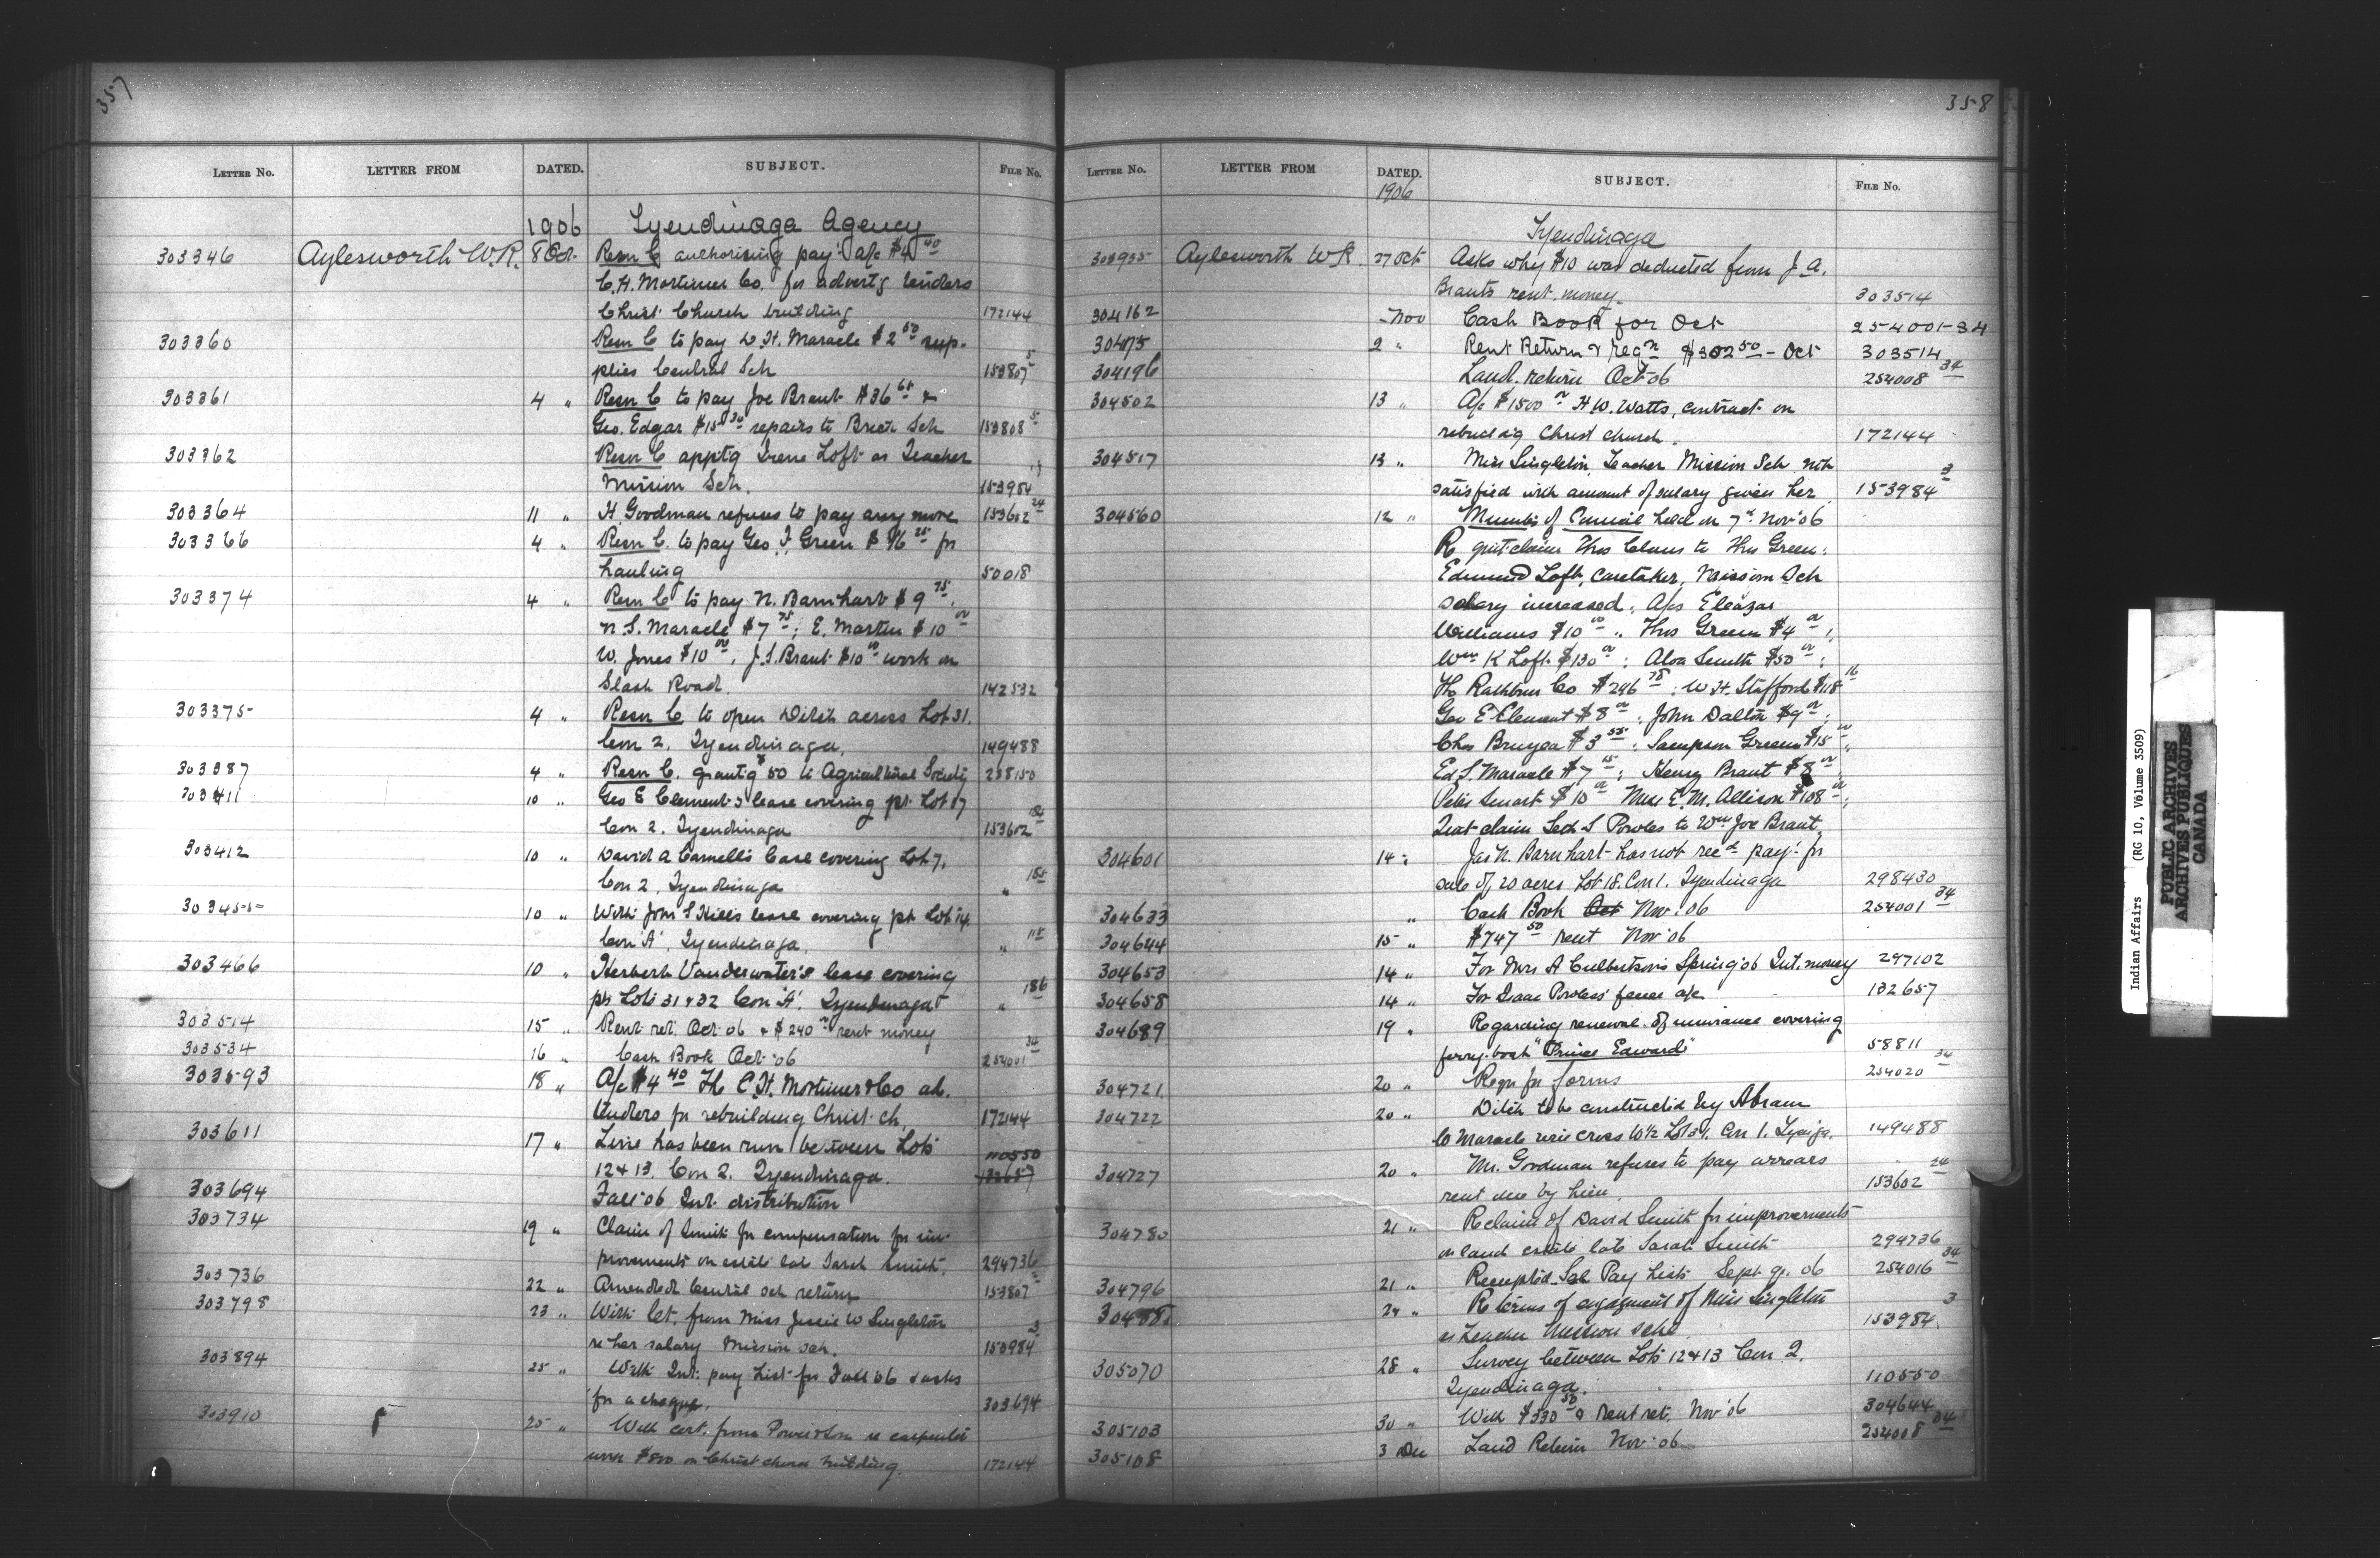 357
LETTER NO. LETTER FROM DATED. SUBJECT. FILE NO.
1906 Tyendinaga Agency
303346 Aylesworth W.R. 8 Oct. Resn C authorising pay't a/c $4.40
C.H. Mortimer Co. for advert'g tenders
Christ Church building 172144
303360 Resn C to pay W.H. Maracle $2.50 sup-
plies Central Sch 153807 5
303361 4 " Resn C to pay Joe Brant $36.65 &
Geo. Edgar $15.30 repairs to Sch 153808 5
303362 Resn C appt'g Irene Loft as Teacher
Mission Sch. 153984
303364 11 " H. Goodman refuses to pay any more 153602 24
303366 4 " Resn C. to pay Geo. F. Green $16.25 for
hauling 50018
303374 4 " Resn C to pay N. Barnhart $9.75,
N.S. Maracle $7.75; E. Martin $10.00
W. Jones $10.00, J.S. Brant $10.00 work on
Slash Road. 142532
303375 4 " Resn C to open Ditch across Lot 31.
Con 2. Tyendinaga. 149488
303387 4 " Resn C. grant'g $50 to Agricultural Society 238150
303411 10 " Geo E Clement's lease covering pt. Lot 17
Con 2. Tyendinaga 153602 184
303412 10 " David A Carnell's lease covering Lot 7.
Con 2, Tyendinaga " 185
303455 10 " With John S Hill's lease covering pt Lot 14.
Con "A", Tyendinaga. "
303466 10 " Herbert Vanderwater's lease covering
pt Lots 31 & 32 Con "A". Tyendinaga " 186
303514 15 " Rent ret. Oct '06 & $240.00 rent money
303534 16 " Cash Book Oct '06 254001 34
303593 18 " A/c $4.40 The C.H. Mortimer & Co ad.
tenders for rebuilding Christ Ch. 172144
303611 17 " Line has been run between Lots 110550
12 & 13. Con 2. Tyendinaga. 132657
303694 Fall '06 Int. distribution
303734 19 " Claim of Smith for compensation for im-
provements on estate late Sarah Smith. 294736
303736 22 " Amended Central sch return 153807
303798 23 " With let. from Miss Jessie W Singleton
re her salary Mission Sch. 153984 3
303894 25 " With Int. pay List for Fall '06 & asks
for a cheque. 303694
303910 25 " With cert. from Power & Son re carpenter
work $800 on Christ church building. 172144
358
LETTER NO. LETTER FROM DATED. SUBJECT. FILE NO.
1906
Tyendinaga
303935 Aylesworth W R. 27 Oct Asks why $10 was deducted from J.A.
Brant's rent money. 303514
304162 Nov Cash Book for Oct 254001-34
304175 2 " Rent Return & reqn $302.50 - Oct 303514
304196 Land return Oct '06 254008 34
304502 13 " A/c $1500.00 H W. Watts, contract on
rebuild'g Christ church. 172144
304517 13 " Miss Singleton, Teacher Mission Sch not
satisfied with amount of salary given her 153984 3
304560 12 " Minutes of Council held on 7th Nov '06
Re quit-claim Thos Claus to Thos Green;
Edmund Loft, Caretaker, Mission Sch
salary increased; A/cs Eleazar
Williams $10.00 " Thos Green $4.00;
Wm K Loft $130.00; Alva Smith $50.00;
The Rathbun Co $296.78; W H. Stafford $118.16
Geo E Clement $8.00; John Dalton $9.00;
Chas Bruyea $3.55; Sampson Green $15.00;
Ed. S. Maracle $7.15; Henry Brant $8.00;
Peter Smart $10.00 Miss E. M. Allison $108.00;
Quit-claim Seth S Powles to Wm Joe Brant
304601 14 " Jas N. Barnhart has not recd pay't for
sale of 20 acres Lot 18. Con 1. Tyendinaga 298430
304633 " Cash Book Oct Nov. '06 254001 34
304644 15 " $747.50 rent Nov '06
304653 14 " For Mrs A Culbertson's Spring '06 Int. money 297102
304658 14 " For Isaac Powless' fence a/c 132657
304689 19 " Regarding renewal of insurance covering
ferry-boat "Prince Edward" 58811
304721 20 " Reqn for forms 254020 34
304722 20 " Ditch to be constructed by Abram
C Maracle will cross W 1/2 Lot 31. Con 1. Tyen'ga. 149488
304727 20 " Mr. Goodman refuses to pay arrears
rent due by him. 153602 24
304780 21 " Re claim of David Smith for improvements
on land estate late Sarah Smith 294736
304796 21 " Receipted Sal Pay Lists Sept qr. 06 254016 34
24 " Re terms of engagement of Miss Singleton
as Teacher Mission Schl 153984 3
305070 28 " Survey between Lots 12 & 13 Con 2.
Tyendinaga. 110550
305103 30 " With $330.50 & Rent ret. Nov '06 304644
305108 3 Dec Land Return Nov '06 254008 34
Indian Affairs (RG 10, Volume 3509)
PUBLIC ARCHIVES
ARCHIVES PUBLIQUES
CANADA